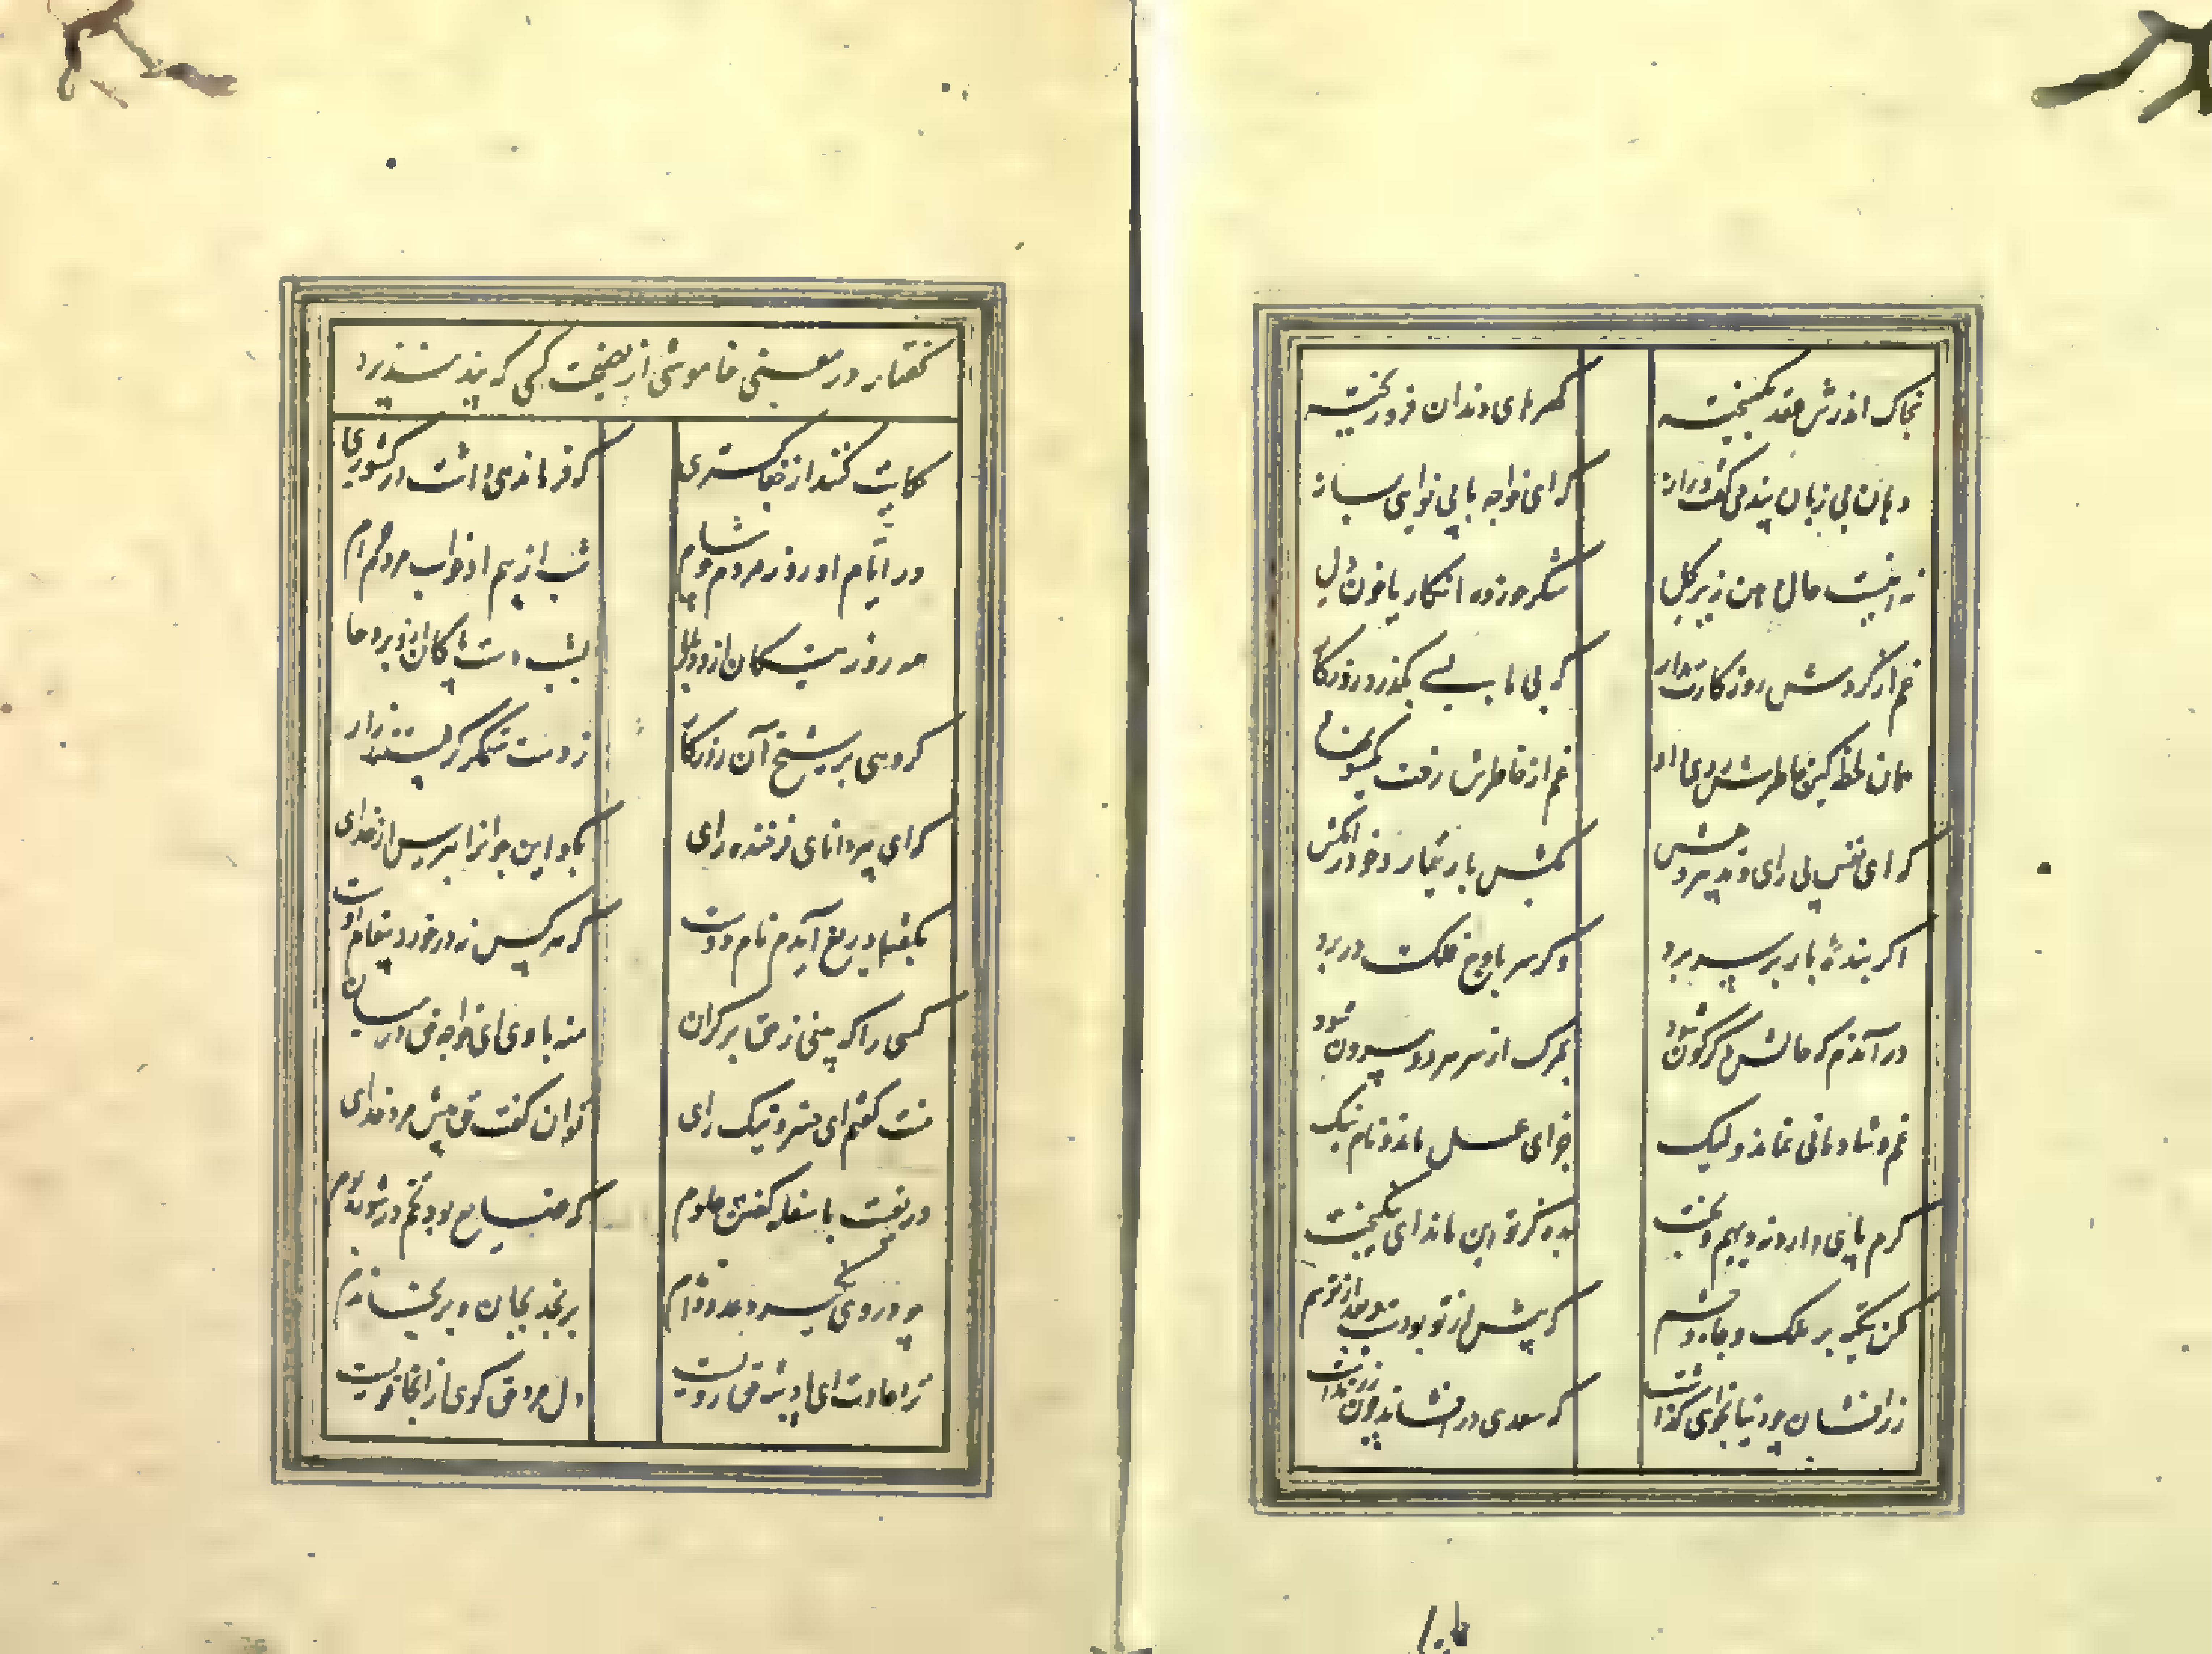 بخاک اندرش عقد بگسیخته
گهرهای دندان فرو ریخته
دهان بی زبان پند می گفت و راز
که ای خواجه با بی نوایی بساز
نه اینست حال دهن زیر گل
شکر خورده انگار یا خون دل
غم از گردش روزگارت مدار
که بی ما بسی بگذرد روزگار
همان لحظه کین خاطرش روی داد
غم از خاطرش رخت یکسو نهاد
که ای نفس بی رای و تدبیر و هش
بکش بار تیمار و خود را مکش
اگر بنده بار بر سر برد
وگر سر باوج فلک در برد
در آندم که حالش دگرگون شود
بمرگ از سر هر دو بیرون شود
غم و شادمانی نماند ولیک
جزای عمل ماند و نام نیک
کرم پای دارد نه دیهیم و تخت
بده کز تو این ماند ای نیکبخت
مکن تکیه بر ملک و جاه و حشم
که پیش از تو بودست و بعد از تو هم
زرافشان چو دنیا بخواهی گذاشت
که سعدی درافشاند چون زر نداشت
گفتار در معنی خاموشی از نصیحت کسی که پند نپذیرد
حکایت کنند از جفاگستری
که فرماندهی داشت در کشوری
در ایام او روز مردم چو شام
شب از بیم او خواب مردم حرام
همه روز نیکان ازو در بلا
بشب دست پاکان ازو بر دعا
گروهی بر شیخ آن روزگار
ز دست ستمگر گریستند زار
که ای پیر دانای فرخنده رای
بگو این جوانرا بترس از خدای
بگفتا دریغ آیدم نام دوست
که هر کس نه در خورد پیغام اوست
کسی را که بینی ز حق بر کران
منه با وی ای خواجه حق در میان
منت گفتم ای خسرو نیک رای
توان گفت حق پیش مرد خدای
دریغست با سفله گفتن علوم
که ضایع بود تخم در شوره بوم
چو در وی نگیرد عدو داندم
برنجد بجان و برنجاندم
ترا عادت ای پادشه حق رویست
دل مرد حق گوی ازانجا قویست